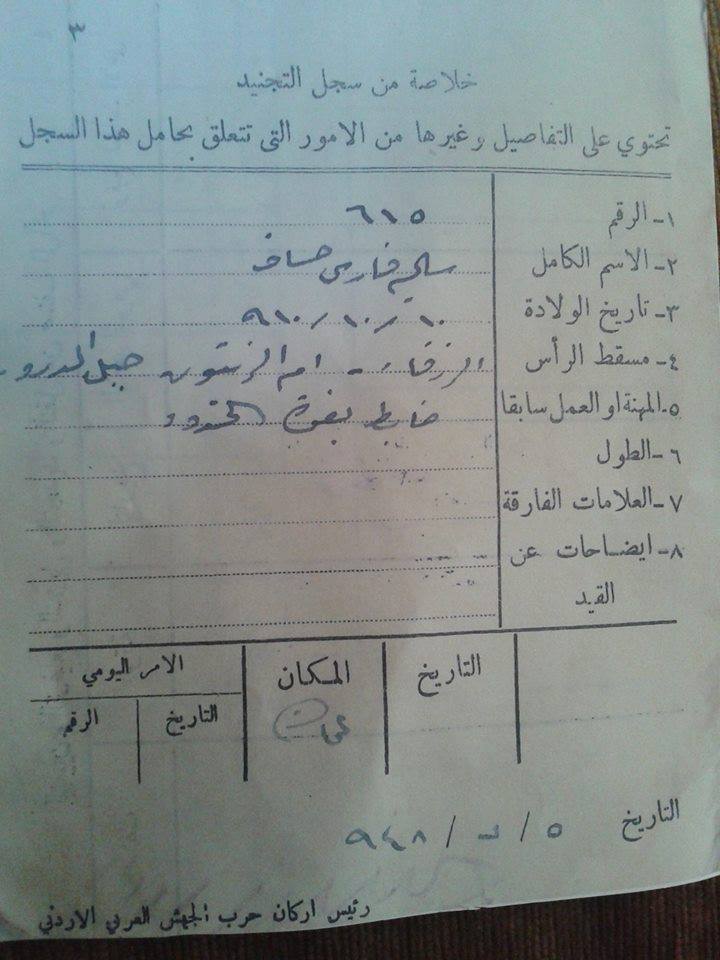 ٣
خلاصة من سجل التجنيد
تحتوي على التفاصيل وغيرها من الامور التى تتعلق بحامل هذا السجل
١- الرقم ٦١٥
٢- الاسم الكامل سليم فارس حساف
٣- تاريخ الولادة ١٠/١٠/٩١٠
٤- مسقط الرأس الزرقاء - ام الزيتون جبل الدروز
٥- المهنة او العمل سابقا ضابط بقوة الحدود
٦- الطول
٧- العلامات الفارقة
٨- ايضاحات عن
القيد
التاريخ المكان الامر اليومي
عمان التاريخ الرقم
التاريخ ٥/ /٩٤٨
رئيس اركان حرب الجيش العربي الاردني